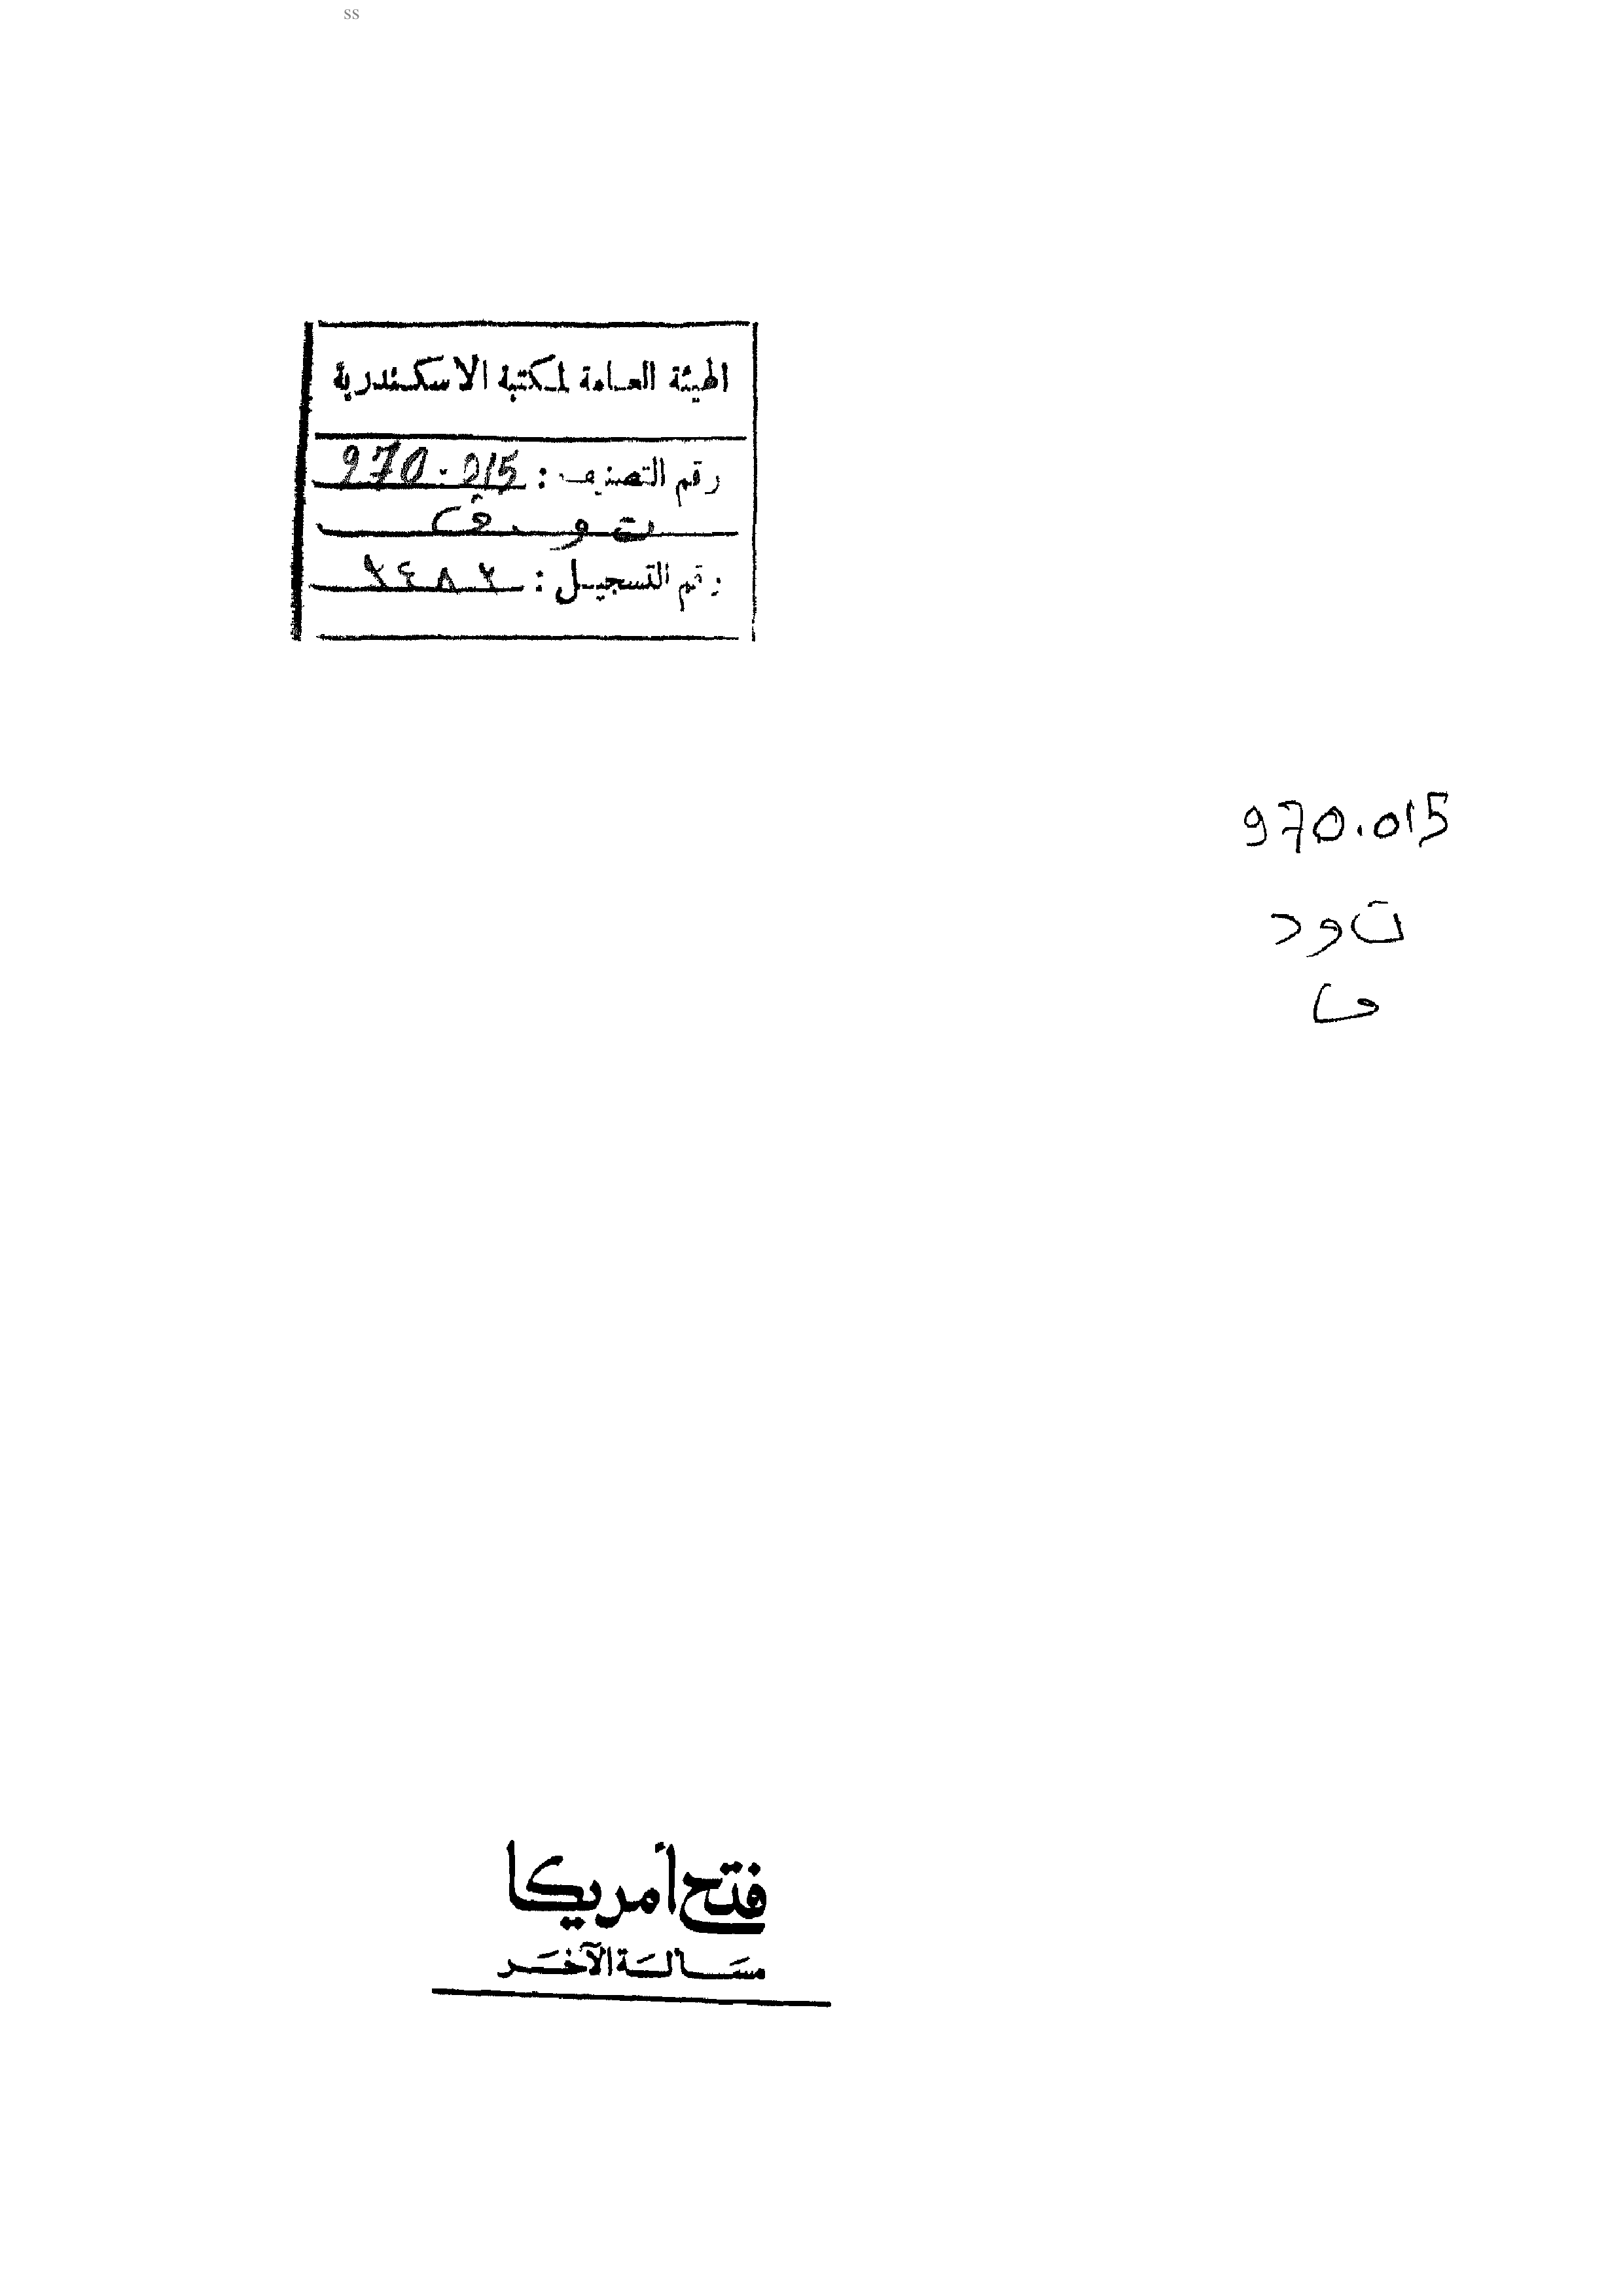 ss
الهيئة العامة لمكتبة الاسكندرية
رقم التصنيف : 970.015
رقم التسجيل :
970.015
تود
ف
فتح أمريكا
مسألة الآخر